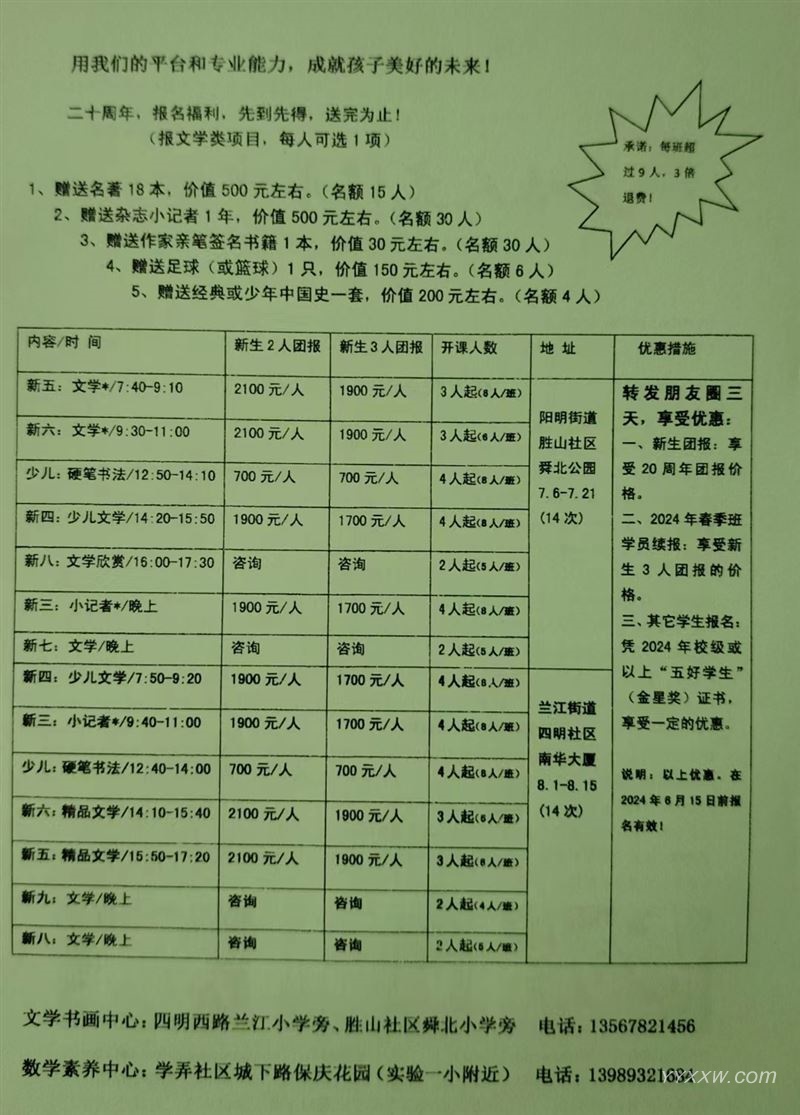 用我们的平台和专业能力，成就孩子美好的未来！
二十周年，报名福利，先到先得，送完为止！
（报文学类项目，每人可选1项）
承诺：每班超
过9人，3倍
退费！
1、赠送名著18本，价值500元左右。（名额15人）
2、赠送杂志小记者1年，价值500元左右。（名额30人）
3、赠送作家亲笔签名书籍1本，价值30元左右。（名额30人）
4、赠送足球（或篮球）1只，价值150元左右。（名额6人）
5、赠送经典或少年中国史一套，价值200元左右。（名额4人）
内容/时 间 新生2人团报 新生3人团报 开课人数 地 址 优惠措施
新五：文学*/7:40-9:10 2100元/人 1900元/人 3人起(8人/班)
新六：文学*/9:30-11:00 2100元/人 1900元/人 3人起(6人/班)
少儿：硬笔书法/12:50-14:10 700元/人 700元/人 4人起(8人/班)
新四：少儿文学/14:20-15:50 1900元/人 1700元/人 4人起(8人/班)
新八：文学欣赏/16:00-17:30 咨询 咨询 2人起(5人/班)
新三：小记者*/晚上 1900元/人 1700元/人 4人起(8人/班)
新七：文学/晚上 咨询 咨询 2人起(5人/班)
阳明街道
胜山社区
舜北公园
7.6-7.21
(14次)
新四：少儿文学/7:50-9:20 1900元/人 1700元/人 4人起(8人/班)
新三：小记者*/9:40-11:00 1900元/人 1700元/人 4人起(8人/班)
少儿：硬笔书法/12:40-14:00 700元/人 700元/人 4人起(8人/班)
新六：精品文学/14:10-15:40 2100元/人 1900元/人 3人起(6人/班)
新五：精品文学/15:50-17:20 2100元/人 1900元/人 3人起(8人/班)
新九：文学/晚上 咨询 咨询 2人起(4人/班)
新八：文学/晚上 咨询 咨询 2人起(5人/班)
兰江街道
四明社区
南华大厦
8.1-8.15
(14次)
转发朋友圈三
天，享受优惠：
一、新生团报：享
受20周年团报价
格。
二、2024年春季班
学员续报：享受新
生3人团报的价
格。
三、其它学生报名：
凭2024年校级或
以上“五好学生”
（金星奖）证书，
享受一定的优惠。
说明：以上优惠。在
2024年6月15日前报
名有效！
文学书画中心：四明西路兰江小学旁、胜山社区舜北小学旁 电话：13567821456
数学素养中心：学弄社区城下路保庆花园（实验一小附近） 电话：13989321684